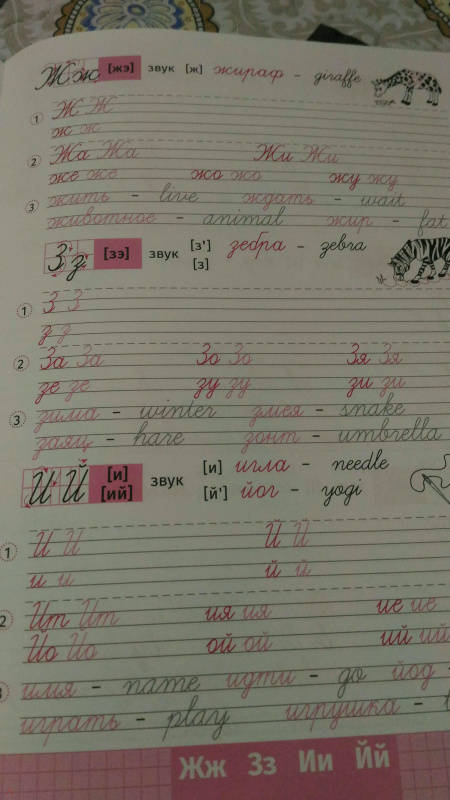 Жж [жэ] звук [ж] жираф - giraffe
1 Ж Ж
ж ж
2 Жа Жа Жи Жи
же же жо жо жу жу
3 жить - live ждать - wait
животное - animal жир - fat
Зз [зэ] звук [з'] [з] зебра - зеbra
1 З З
з з
2 За За Зо Зо Зя Зя
зе зе зу зу зи зи
3 зима - winter змея - snake
заяц - hare зонт - umbrella
И Й [и] [ий] звук [и] игла - needle
[й'] йог - yogi
1 И И Й Й
и и й й
2 Ит Ит ия ия ие ие
Йо Йо ой ой ий ий
3 имя - name идти - go йод -
играть - play игрушка -
Жж Зз Ии Йй